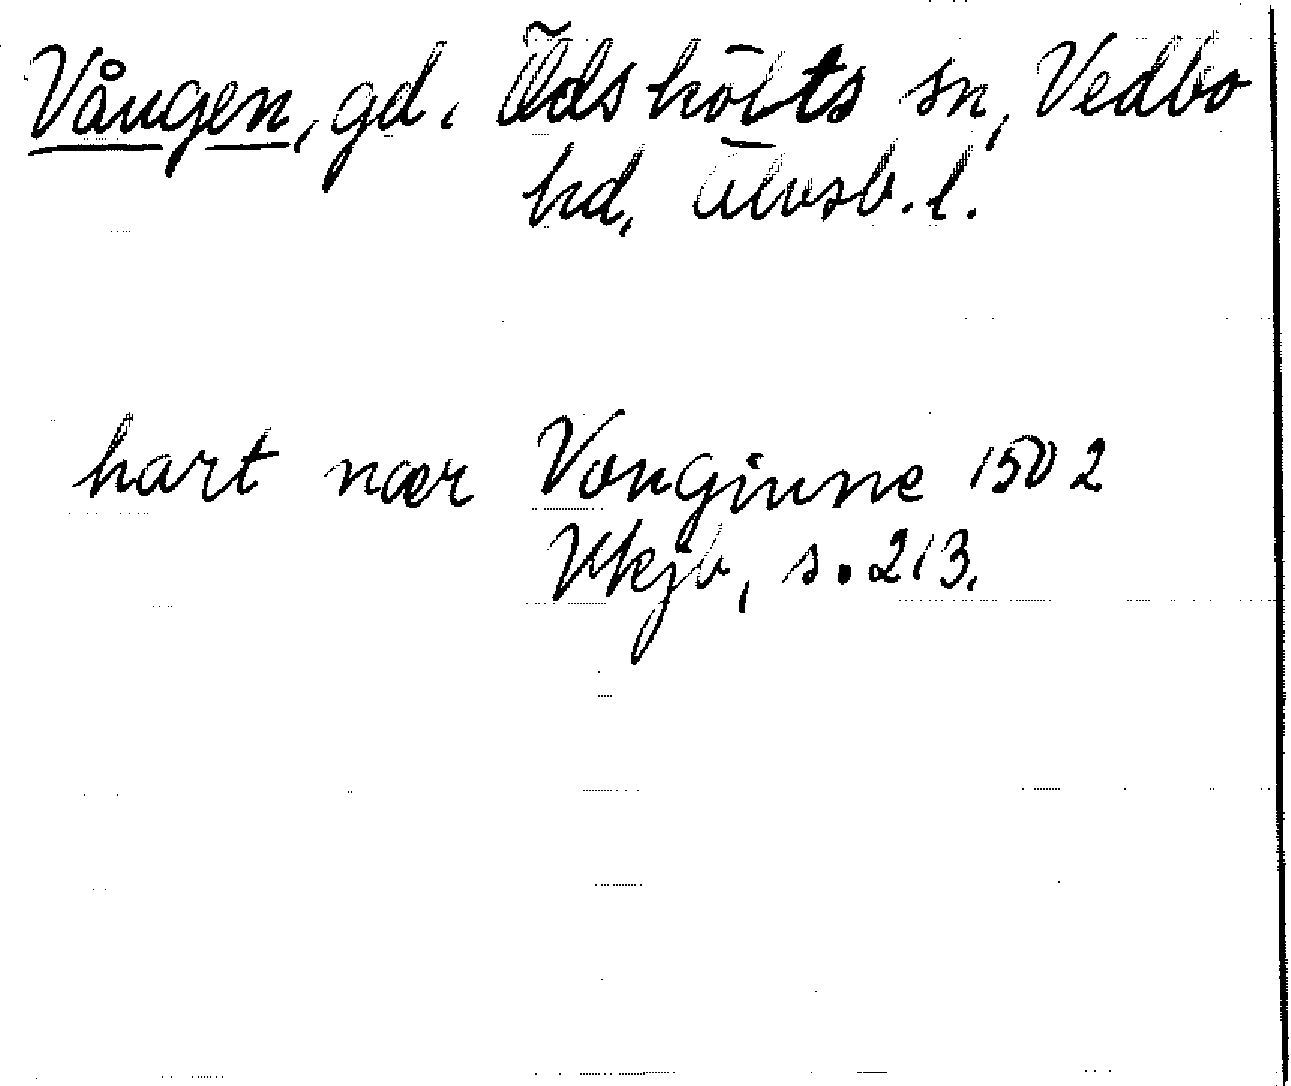 Vången, gd. Ödshölts sn, Vedbo
hd, Älvsb. l.
hart nær Vonginne 1502
Vkjb, s. 213.